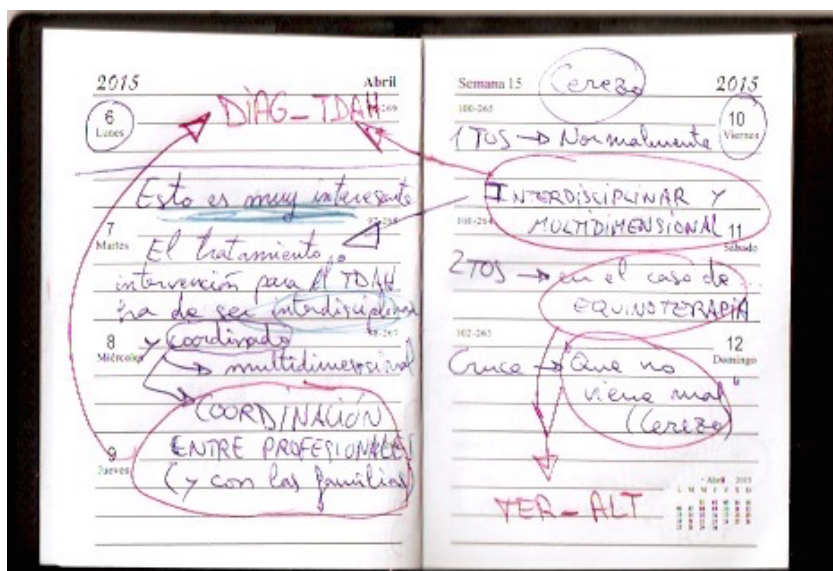 2015 Abril
6 Lunes
DIAG_TDAH
Esto es muy interesante
7 Martes
El tratamiento o
intervención para el TDAH
ha de ser interdisciplinar
8 Miércoles
y coordinado
multidimensional
COORDINACIÓN
9 Jueves
ENTRE PROFESIONALES
(y con las familias)
Semana 15 Cerezo 2015
100-265
10 Viernes
1 TOS → Normalmente
INTERDISCIPLINAR Y
101-264
MULTIDIMENSIONAL
11 Sábado
2TOS → en el caso de ...
EQUINOTERAPIA
102-263
12 Domingo
Cruce → "Que no
viene mal"
(Cerezo)
Abril 2015
L M M J V S D
TER_ALT